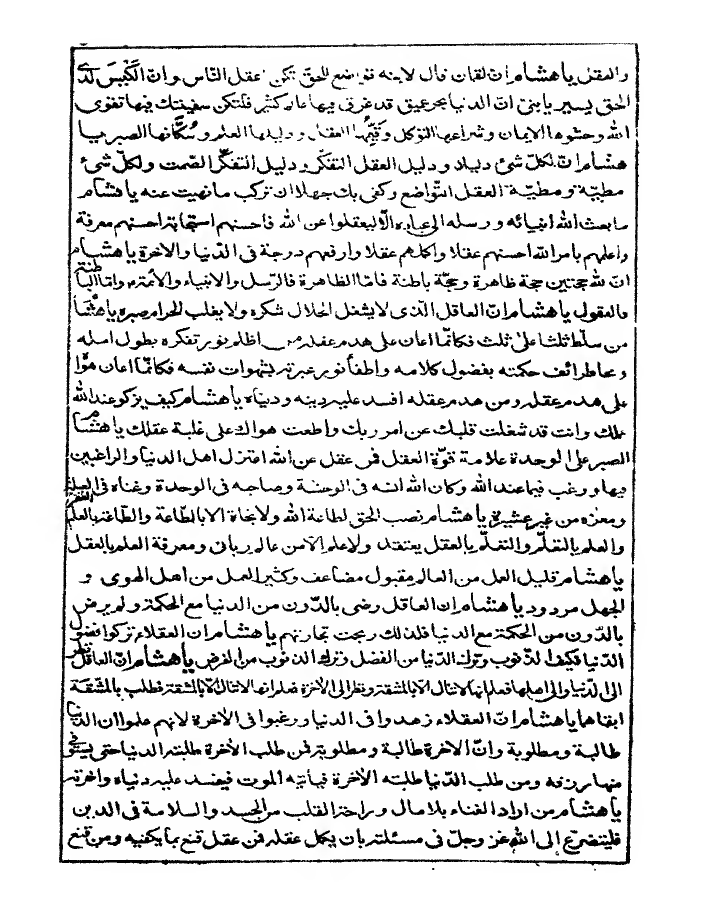 والعقل يا هشام ان لقمان قال لابنه تواضع للحق تكن اعقل الناس وان الكيس لدى
الحق يسير يا بنى ان الدنيا بحر عميق قد غرق فيها عالم كثير فلتكن سفينتك فيها تقوى
الله وحشوها الايمان وشراعها التوكل وقيمها العقل ودليلها العلم وسكانها الصبر يا
هشام ان لكل شئ دليلا ودليل العقل التفكر ودليل التفكر الصمت ولكل شئ
مطية ومطية العقل التواضع وكفى بك جهلا ان تركب ما نهيت عنه يا هشام
ما بعث الله انبيائه ورسله الى عباده الا ليعقلوا عن الله فاحسنهم استجابة احسنهم معرفة
واعلمهم بامر الله احسنهم عقلا واكملهم عقلا وارفعهم درجة فى الدنيا والاخرة يا هشام
ان لله حجتين حجة ظاهرة وحجة باطنة فاما الظاهرة فالرسل والانبياء والائمة واما الباطنة
فالعقول يا هشام ان العاقل الذى لا يشغل الحلال شكره ولا يغلب الحرام صبره يا هشام
من سلط ثلثا على ثلث فكانما اعان على هدم عقله من اظلم نور تفكره بطول امله
ومحا طرائف حكمته بفضول كلامه واطفأ نور عبرته بشهوات نفسه فكانما اعان هواه
على هدم عقله ومن هدم عقله افسد عليه دينه ودنياه يا هشام كيف يزكو عند الله
عملك وانت قد شغلت قلبك عن امر ربك واطعت هواك على غلبة عقلك يا هشام
الصبر على الوحدة علامة قوة العقل فمن عقل عن الله اعتزل اهل الدنيا والراغبين
فيها ورغب فيما عند الله وكان الله انسه فى الوحشة وصاحبه فى الوحدة وغناه فى العيلة
ومعزه من غير عشيرة يا هشام نصب الحق لطاعة الله ولا نجاة الا بالطاعة والطاعة بالعلم
والعلم بالتعلم والتعلم بالعقل يعتقد ولا علم الا من عالم ربانى ومعرفة العلم بالعقل
يا هشام قليل العمل من العالم مقبول مضاعف وكثير العمل من اهل الهوى و
الجهل مردود يا هشام ان العاقل رضى بالدون من الدنيا مع الحكمة ولم يرض
بالدون من الحكمة مع الدنيا فلذلك ربحت تجارتهم يا هشام ان العقلاء تركوا فضول
الدنيا فكيف الذنوب وترك الدنيا من الفضل وترك الذنوب من الفرض يا هشام ان العاقل نظر
الى الدنيا والى اهلها فعلم انها لا تنال الا بالمشقة ونظر الى الاخرة فعلم انها لا تنال الا بالمشقة فطلب بالمشقة
ابقاهما يا هشام ان العقلاء زهدوا فى الدنيا ورغبوا فى الاخرة لانهم علموا ان الدنيا
طالبة ومطلوبة وان الاخرة طالبة ومطلوبة فمن طلب الاخرة طلبته الدنيا حتى يستوفى
منها رزقه ومن طلب الدنيا طلبته الاخرة فيأتيه الموت فيفسد عليه دنياه واخرته
يا هشام من اراد الغناء بلا مال وراحة القلب من الحسد والسلامة فى الدين
فليتضرع الى الله عز وجل فى مسئلته بان يكمل عقله فمن عقل قنع بما يكفيه ومن قنع